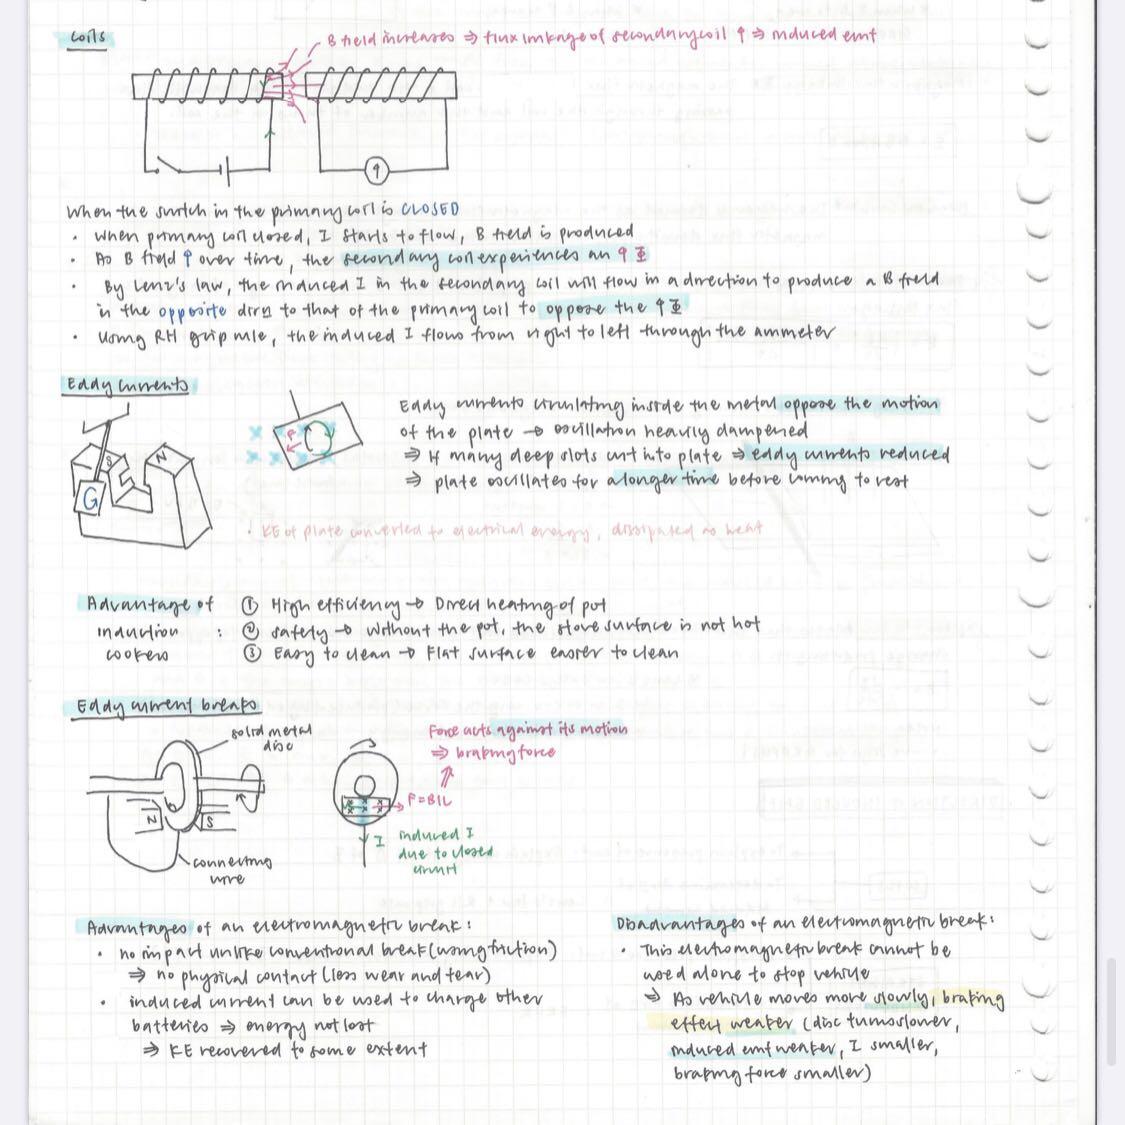 Coils
B field increases ⇒ flux linkage of secondary coil ↑ ⇒ induced emf
When the switch in the primary coil is CLOSED
· When primary coil closed, I starts to flow, B field is produced
· As B field ↑ over time, the secondary coil experiences an ↑ Φ
· By Lenz's law, the induced I in the secondary coil will flow in a direction to produce a B field
in the opposite dirn to that of the primary coil to oppose the ↑ Φ
· Using RH grip rule, the induced I flows from right to left through the ammeter
Eddy currents
S
N
G
F
Eddy currents circulating inside the metal oppose the motion
of the plate → oscillation heavily dampened
⇒ If many deep slots cut into plate ⇒ eddy currents reduced
⇒ plate oscillates for a longer time before coming to rest
· KE of plate converted to electrical energy, dissipated as heat
Advantage of ① High efficiency → Direct heating of pot
induction : ② safety → without the pot, the stove surface is not hot
cookers ③ Easy to clean → Flat surface easier to clean
Eddy current breaks
solid metal
disc
N
S
connecting
wire
Force acts against its motion
⇒ braking force
F=BIL
I
induced I
due to closed
circuit
Advantages of an electromagnetic break:
· no impact unlike conventional break (using friction)
⇒ no physical contact (less wear and tear)
· induced current can be used to charge other
batteries ⇒ energy not lost
⇒ KE recovered to some extent
Disadvantages of an electromagnetic break:
· This electromagnetic break cannot be
used alone to stop vehicle
⇒ As vehicle moves more slowly, braking
effect weaker (disc turns slower,
induced emf weaker, I smaller,
braking force smaller)